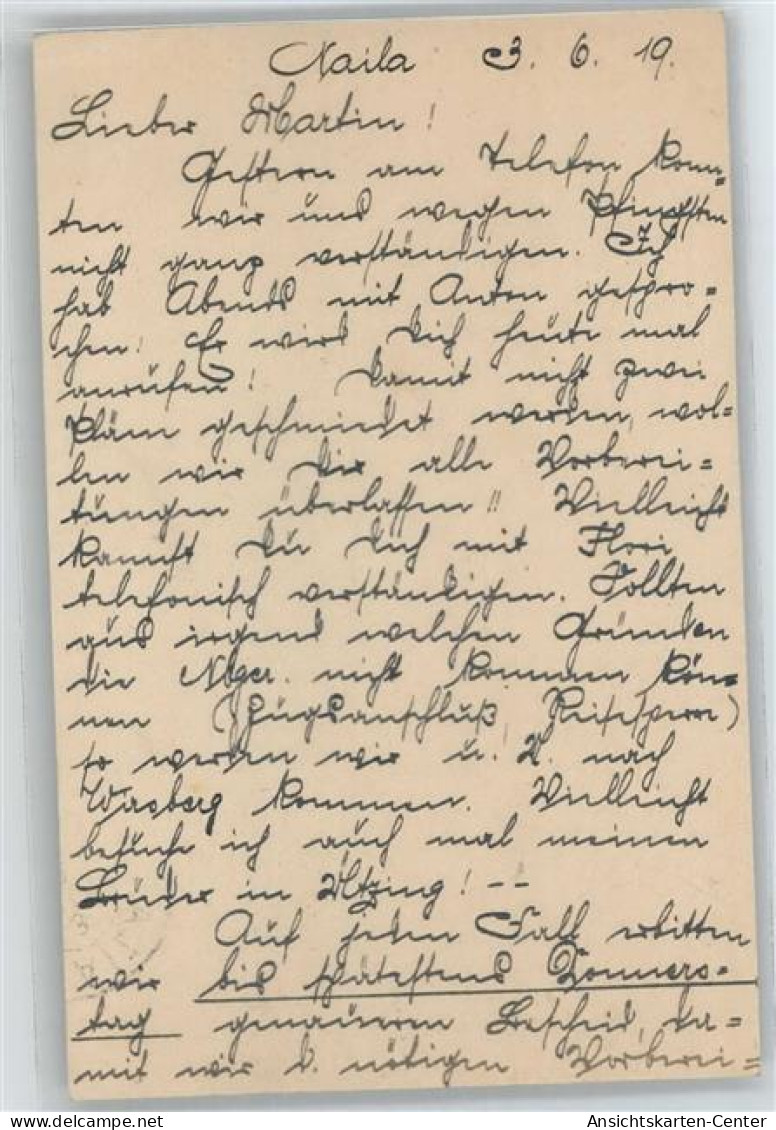 Naila 3. 6. 19.
Lieber Martin!
Gestern am Telefon konn-
ten wir uns wegen Pfingsten
nicht ganz verständigen. Ich
hab Abends mit Anton gespro-
chen! Er wird Dich heute mal
anrufen! Damit nicht zwei
Pläne geschmiedet werden, wol-
len wir Dir alle Vorberei-
tungen überlassen!! Vielleicht
kannst Du Dich mit Flori
telefonisch verständigen. Sollten
aus irgend welchen Gründen
die nicht kommen kön-
nen (Zugsanschluß, Reisesperre)
so werden wir u. U. nach
kommen. Vielleicht
besuche ich auch mal meinen
Bruder in Utzing! --
Auf jeden Fall erbitten
wir bis spätestens Donners-
tag genaueren Bescheid, da-
mit wir d. nötigen Vorberei-
Ansichtskarten-Center